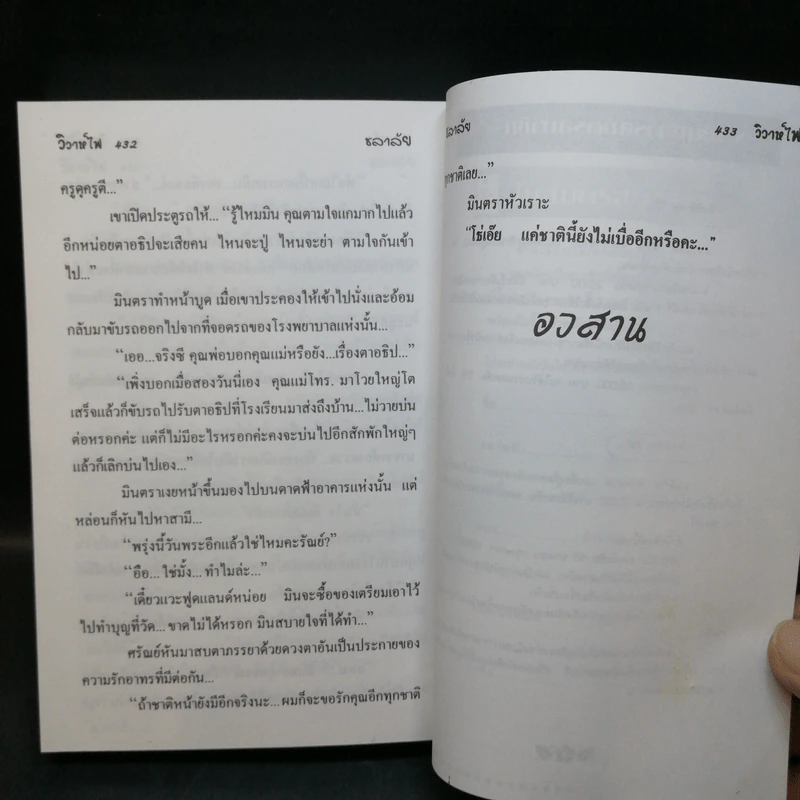 วิวาห์ไฟ 432 ชลาลัย
ครูดุครูตี..."
เขาเปิดประตูรถให้... "รู้ไหมมิน คุณตามใจแกมากไปแล้ว
อีกหน่อยตาอธิปจะเสียคน ไหนจะปู่ ไหนจะย่า ตามใจกันเข้า
ไป..."
มินตราทำหน้าบูด เมื่อเขาประคองให้เข้าไปนั่งและอ้อม
กลับมาขับรถออกไปจากที่จอดรถของโรงพยาบาลแห่งนั้น...
"เออ...จริงซี คุณพ่อบอกคุณแม่หรือยัง...เรื่องตาอธิป..."
"เพิ่งบอกเมื่อสองวันนี่เอง คุณแม่โทร. มาโวยใหญ่โต
เสร็จแล้วก็ขับรถไปรับตาอธิปที่โรงเรียนมาส่งถึงบ้าน...ไม่วายบ่น
ต่อหรอกค่ะ แต่ก็ไม่มีอะไรหรอกค่ะคงจะบ่นไปอีกสักพักใหญ่ๆ
แล้วก็เลิกบ่นไปเอง..."
มินตราเงยหน้าขึ้นมองไปบนดาดฟ้าอาคารแห่งนั้น แต่
หล่อนก็หันไปหาสามี...
"พรุ่งนี้วันพระอีกแล้วใช่ไหมคะรัณย์?"
"อือ... ใช่มั้ง... ทำไมล่ะ..."
"เดี๋ยวแวะฟูดแลนด์หน่อย มินจะซื้อของเตรียมเอาไว้
ไปทำบุญที่วัด... ขาดไม่ได้หรอก มินสบายใจที่ได้ทำ..."
ศรัณย์หันมาสบตาภรรยาด้วยดวงตาอันเป็นประกายของ
ความรักอาทรที่มีต่อกัน...
"ถ้าชาติหน้ายังมีอีกจริงนะ... ผมก็จะขอรักคุณอีกทุกชาติ
ชลาลัย 433 วิวาห์ไฟ
ทุกชาติเลย..."
มินตราหัวเราะ
"โธ่เอ๊ย แค่ชาตินี้ยังไม่เบื่ออีกหรือคะ..."
อวสาน